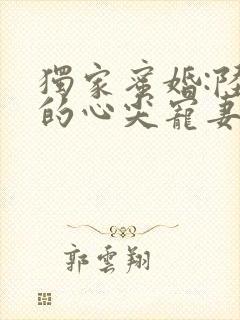 獨家蜜婚:陸
的心尖寵妻
郭雲翔